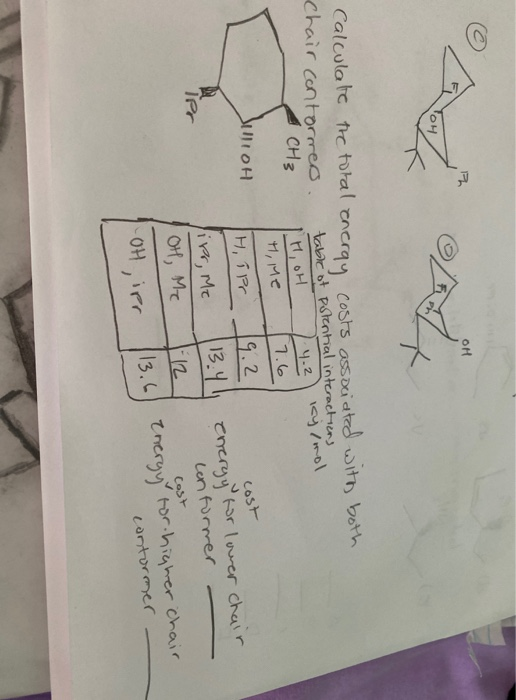 C
F
OH
Ph
D
F
Ph
OH
Calculate the total energy costs associated with both
chair conformers.
table of potential interactions
KJ/mol
CH3
OH
iPr
H, OH 4.2
H, Me 7.6
H, iPr 9.2
iPr, Me 13.4
OH, Me 12
OH, iPr 13.6
cost
energy for lower chair
conformer
cost
energy for higher chair
conformer